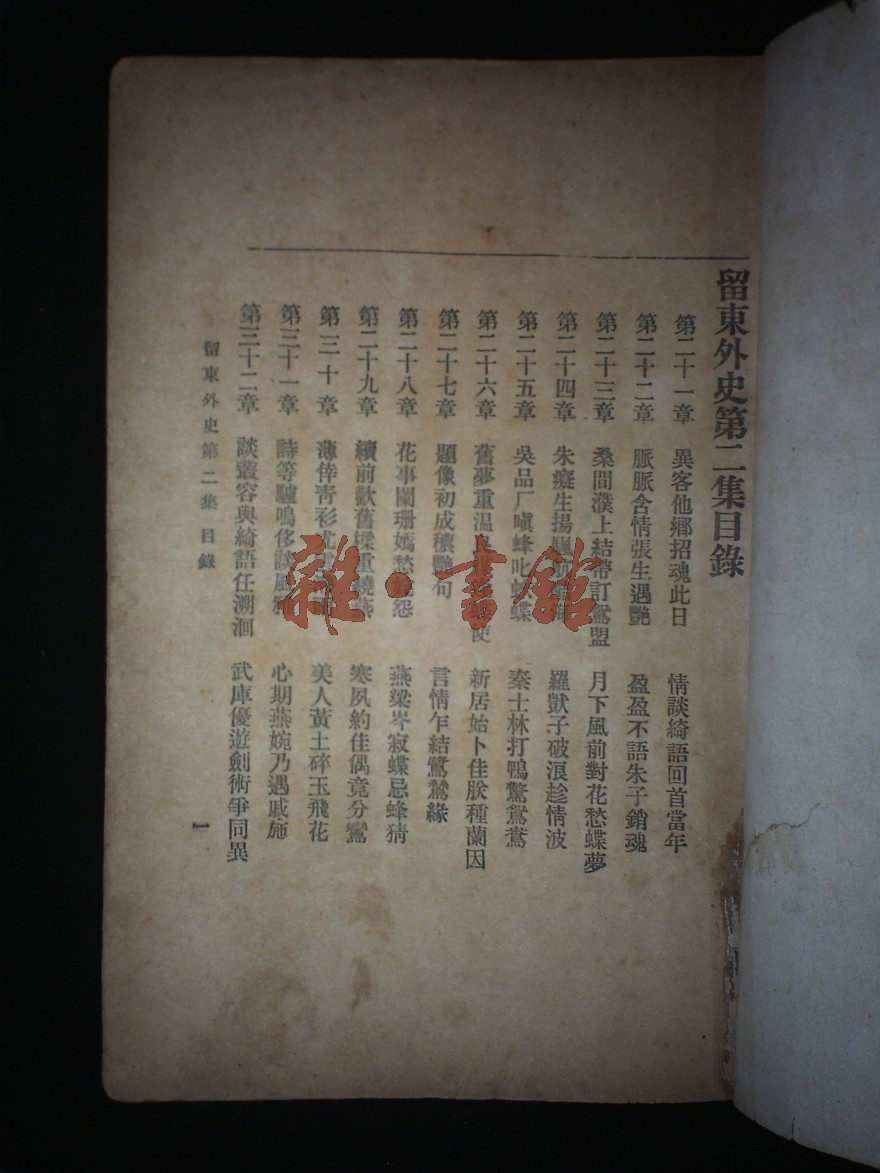 留東外史第二集目錄
第二十一章 異客他鄉招魂此日 情談綺語回首當年
第二十二章 脈脈含情張生遇艷 盈盈不語朱子銷魂
第二十三章 桑間濮上結帶訂鴛盟 月下風前對花愁蝶夢
第二十四章 朱癡生揚颿 羅獃子破浪趁情波
第二十五章 吳品厂嗔蜂叱蝶 秦士林打鴨驚鴛鴦
第二十六章 舊夢重溫 使 新居始卜佳朕種蘭因
第二十七章 題像初成穠艷句 言情乍結鷺鶿緣
第二十八章 花事闌珊嫣愁 怨 燕梁岑寂蝶忌蜂猜
第二十九章 續前歡舊樑重繞燕 寒夙約佳偶竟分鸞
第三十章 薄倖青衫 美人黃土碎玉飛花
第三十一章 詩等驢鳴侈談風雅 心期燕婉乃遇戚施
第三十二章 談叢容與綺語任溯洄 武庫優遊劍術爭同異
留東外史第二集 目錄
一
雜·書館